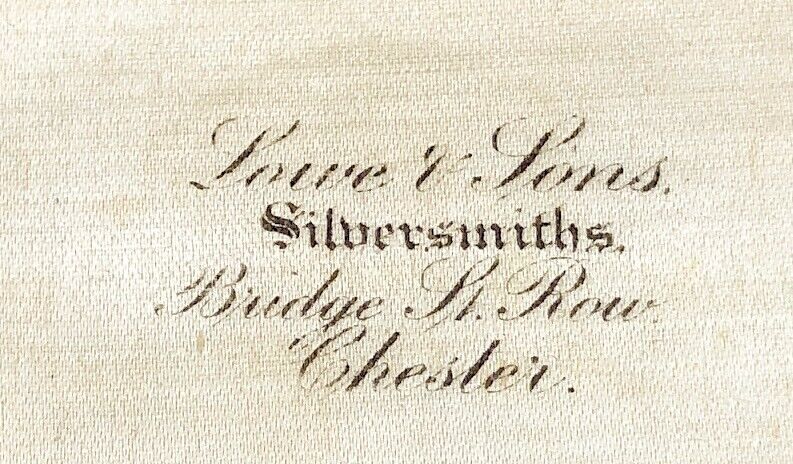 Lowe & Sons.
Silversmiths.
Bridge St. Row.
Chester.